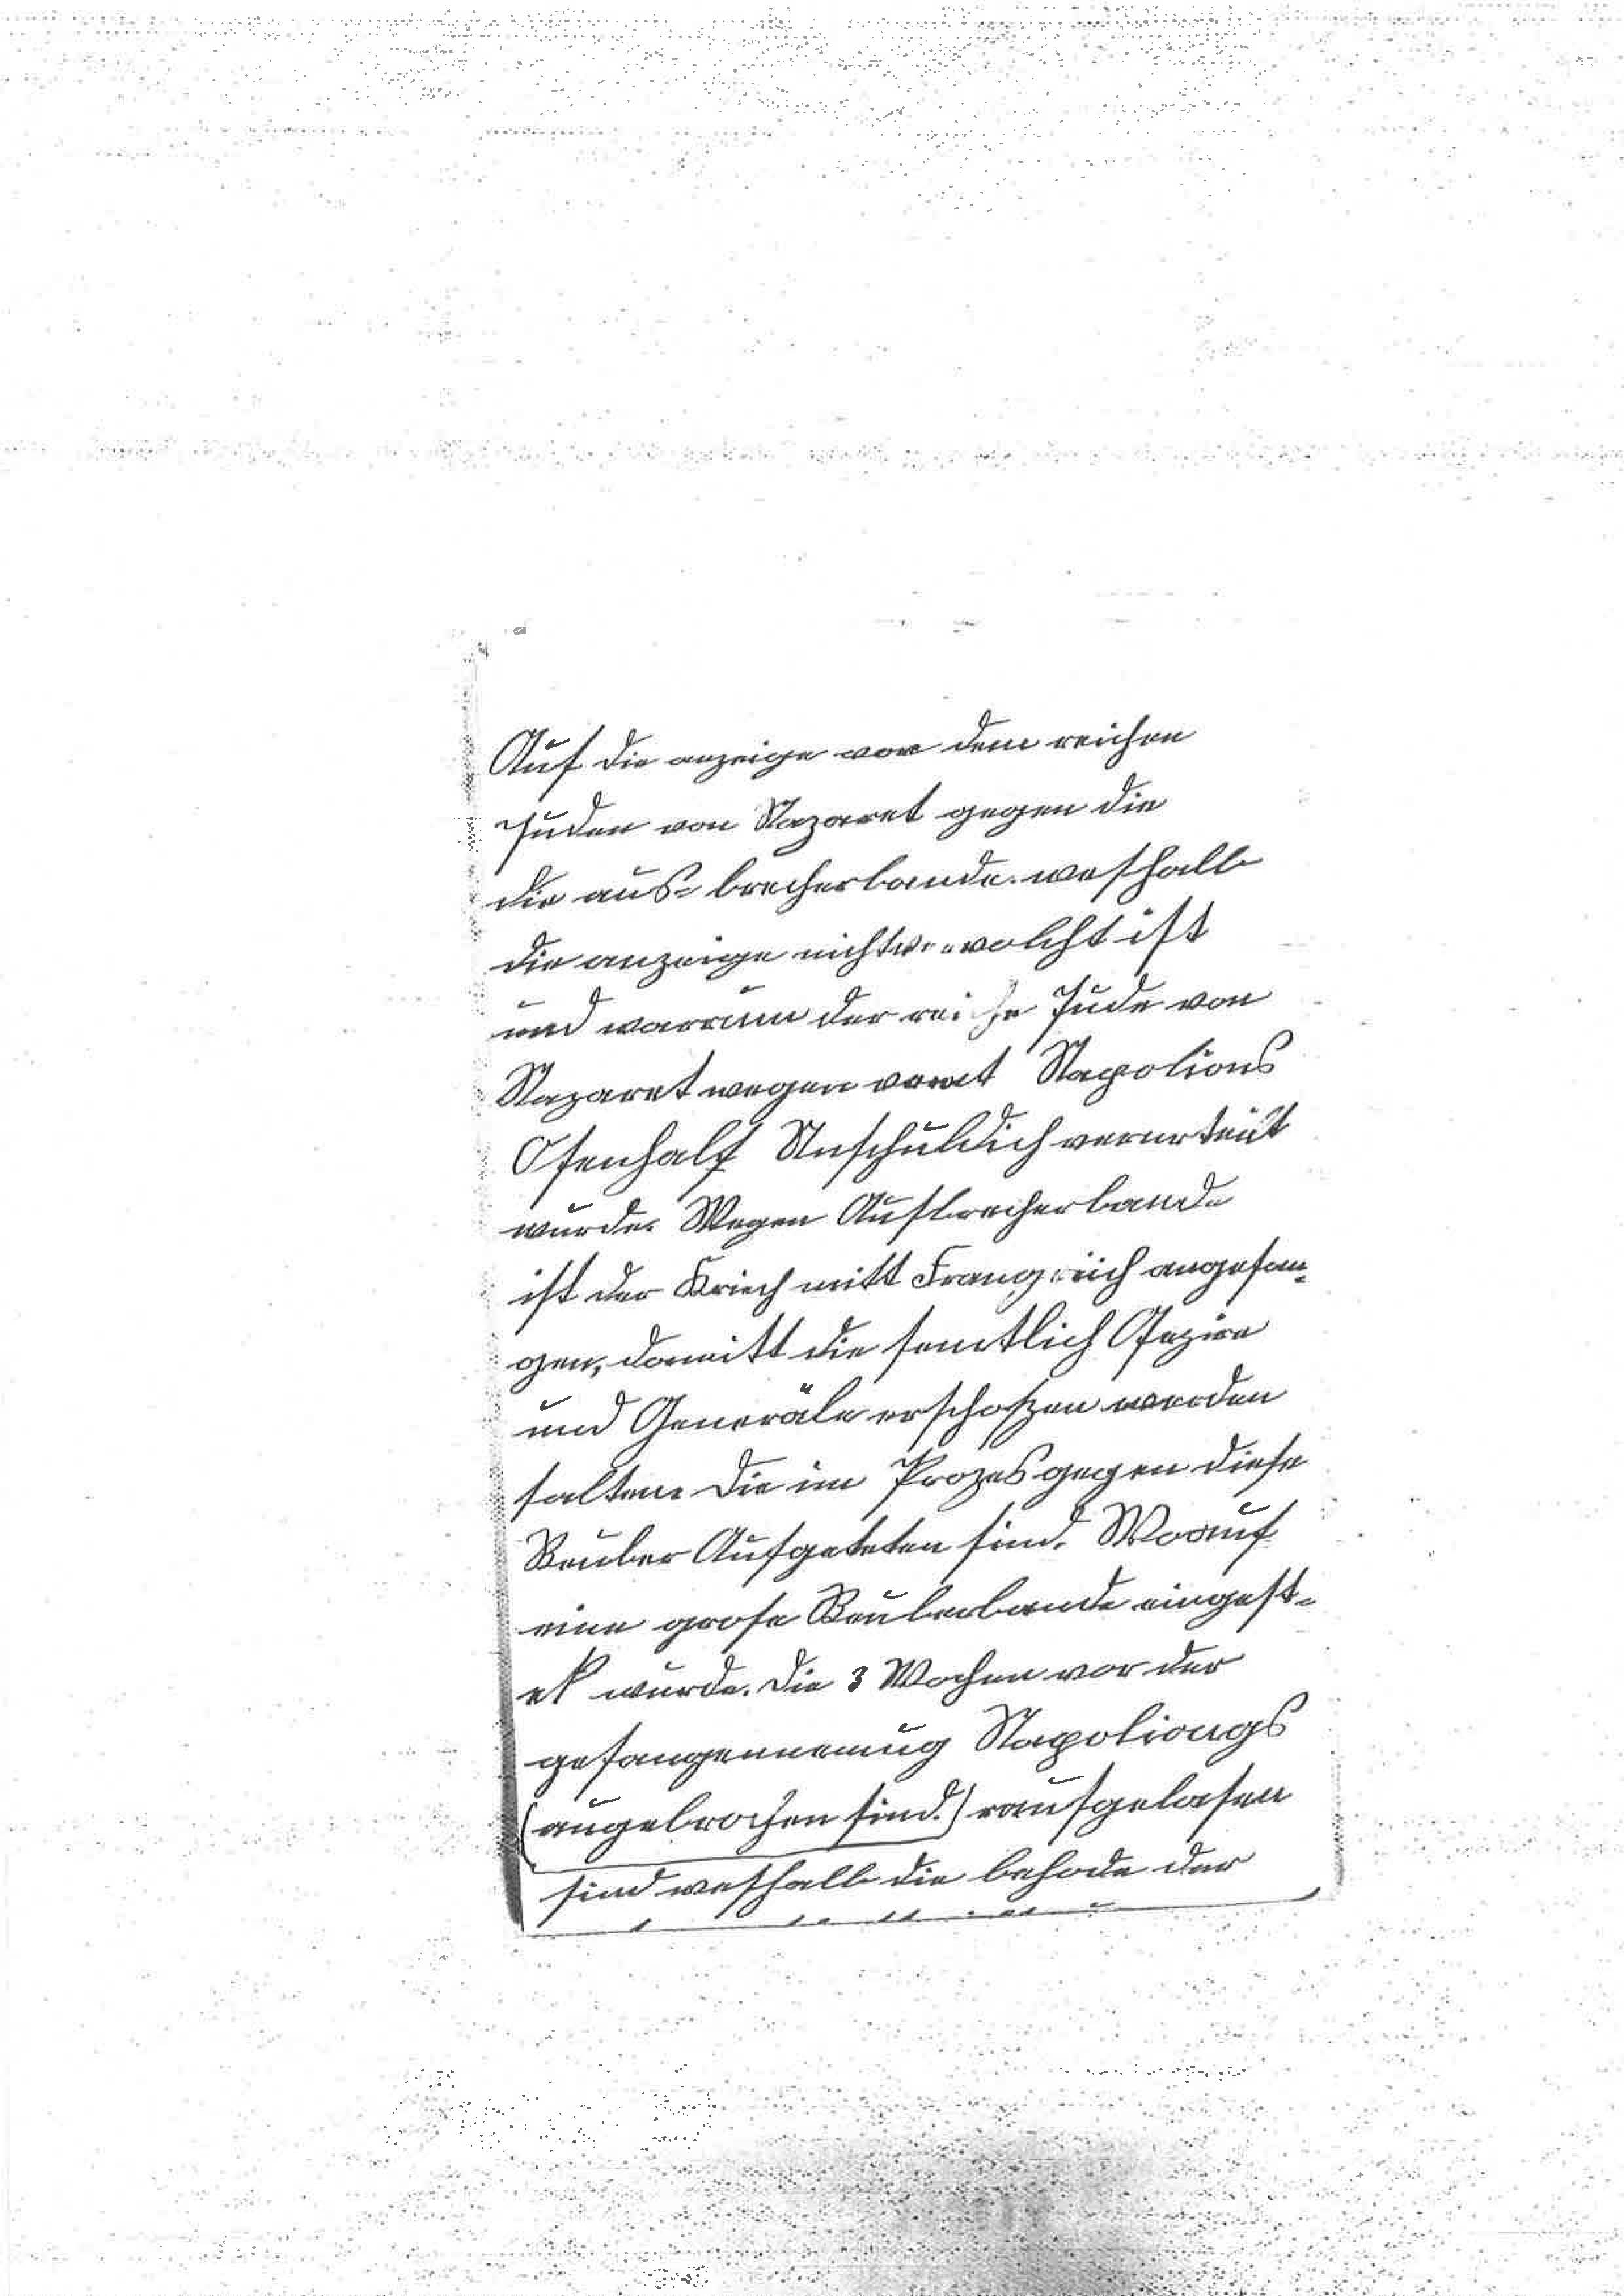 Auf die anzeige vor dem reichen
Juden von Nazaret gegen die
die aus- brecherbande. weshalb
die anzeige nicht ist
und warrum der reiche Jude von
Nazaret wegen Napolions
Unschuldich verurteilt
wurde. Wegen Ausbrecherbande
ist der Kriech mitt Frangreich angefan-
gen, damitt die semtlich Ofezire
und Generäle erschoßen werden
solten. Die im Prozes gegen diese
Reuber Aufgeteten sind. Worauf
eine grose Reuberbande eingest-
ek wurde. Die 3 Wochen vor der
gefangennemug Napoliongs
(augebrochen sind.) rausgelasen
sind weshalb die behode der